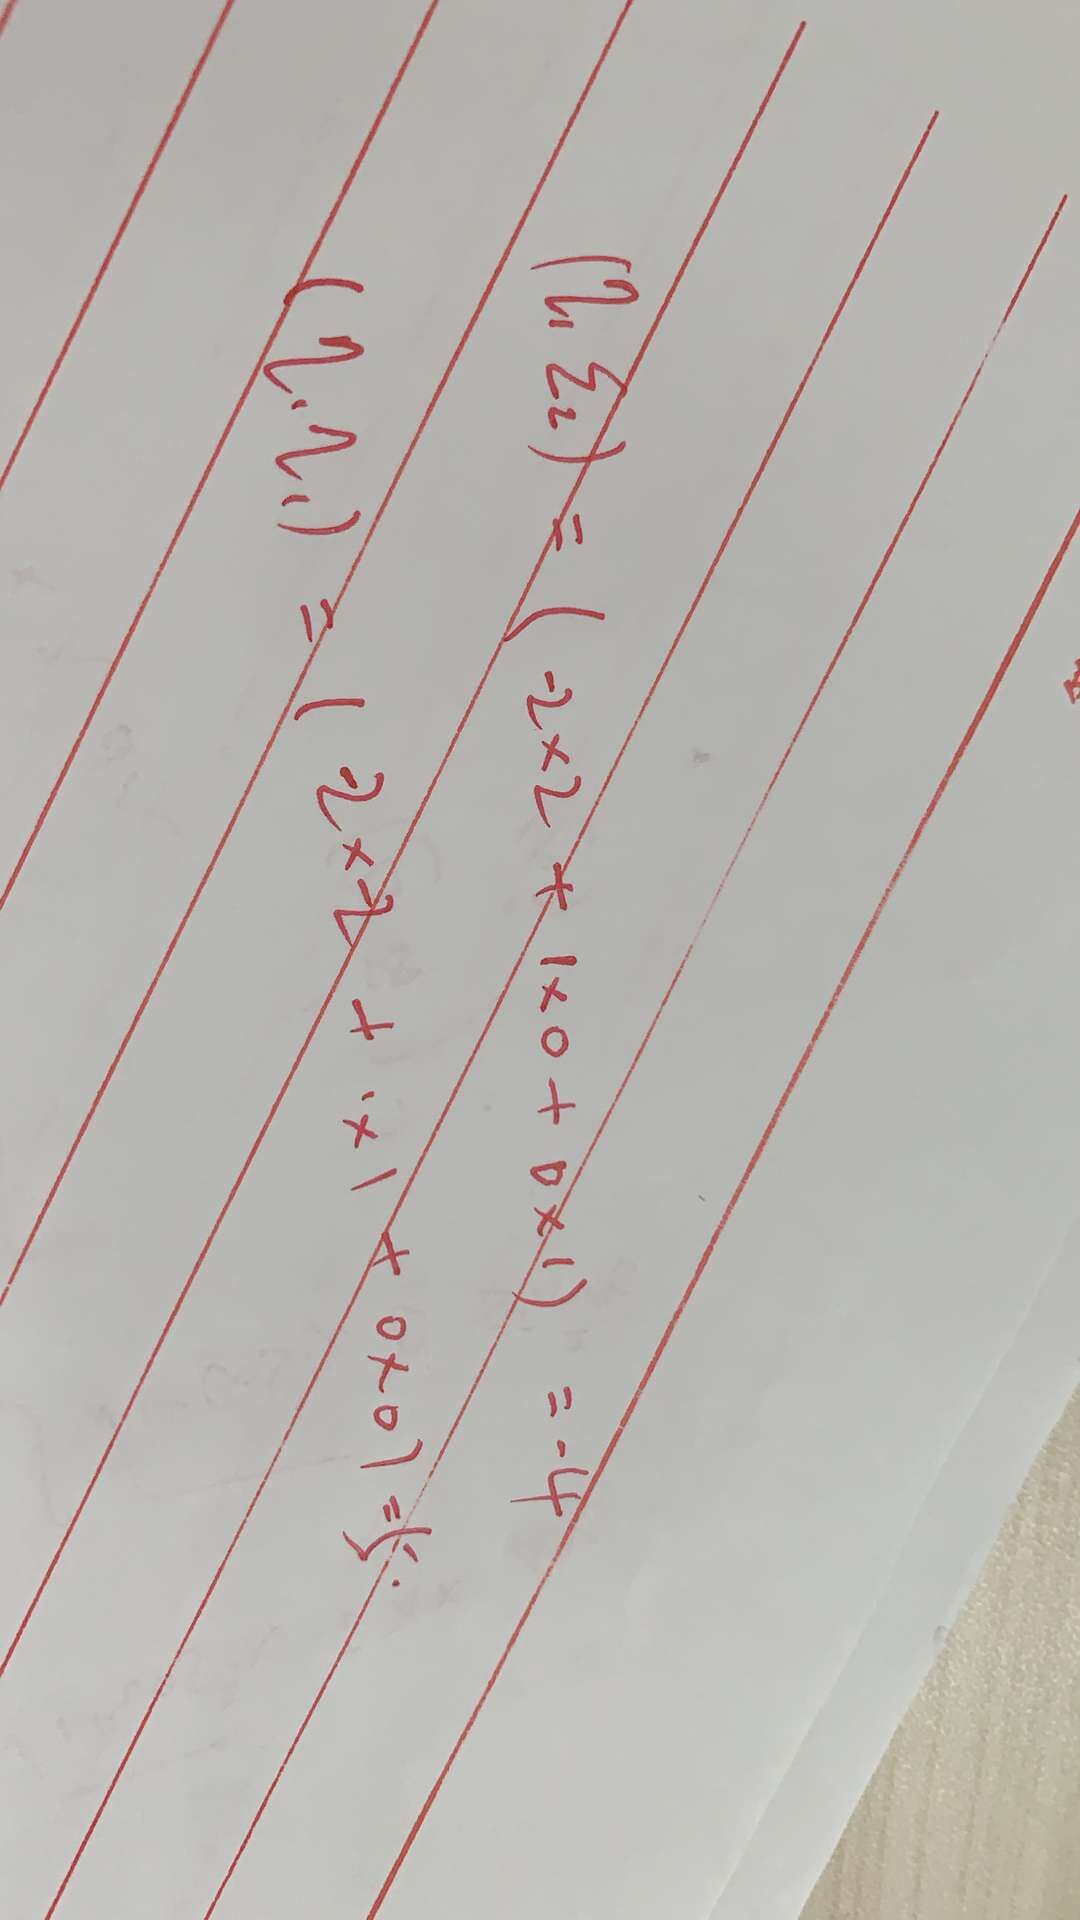 (η₁ ξ₂) = (-2×2 + 1×0 + 0×1) = -4
(η₁ η₁) = (-2×-2 + 1×1 + 0×0) = 5.